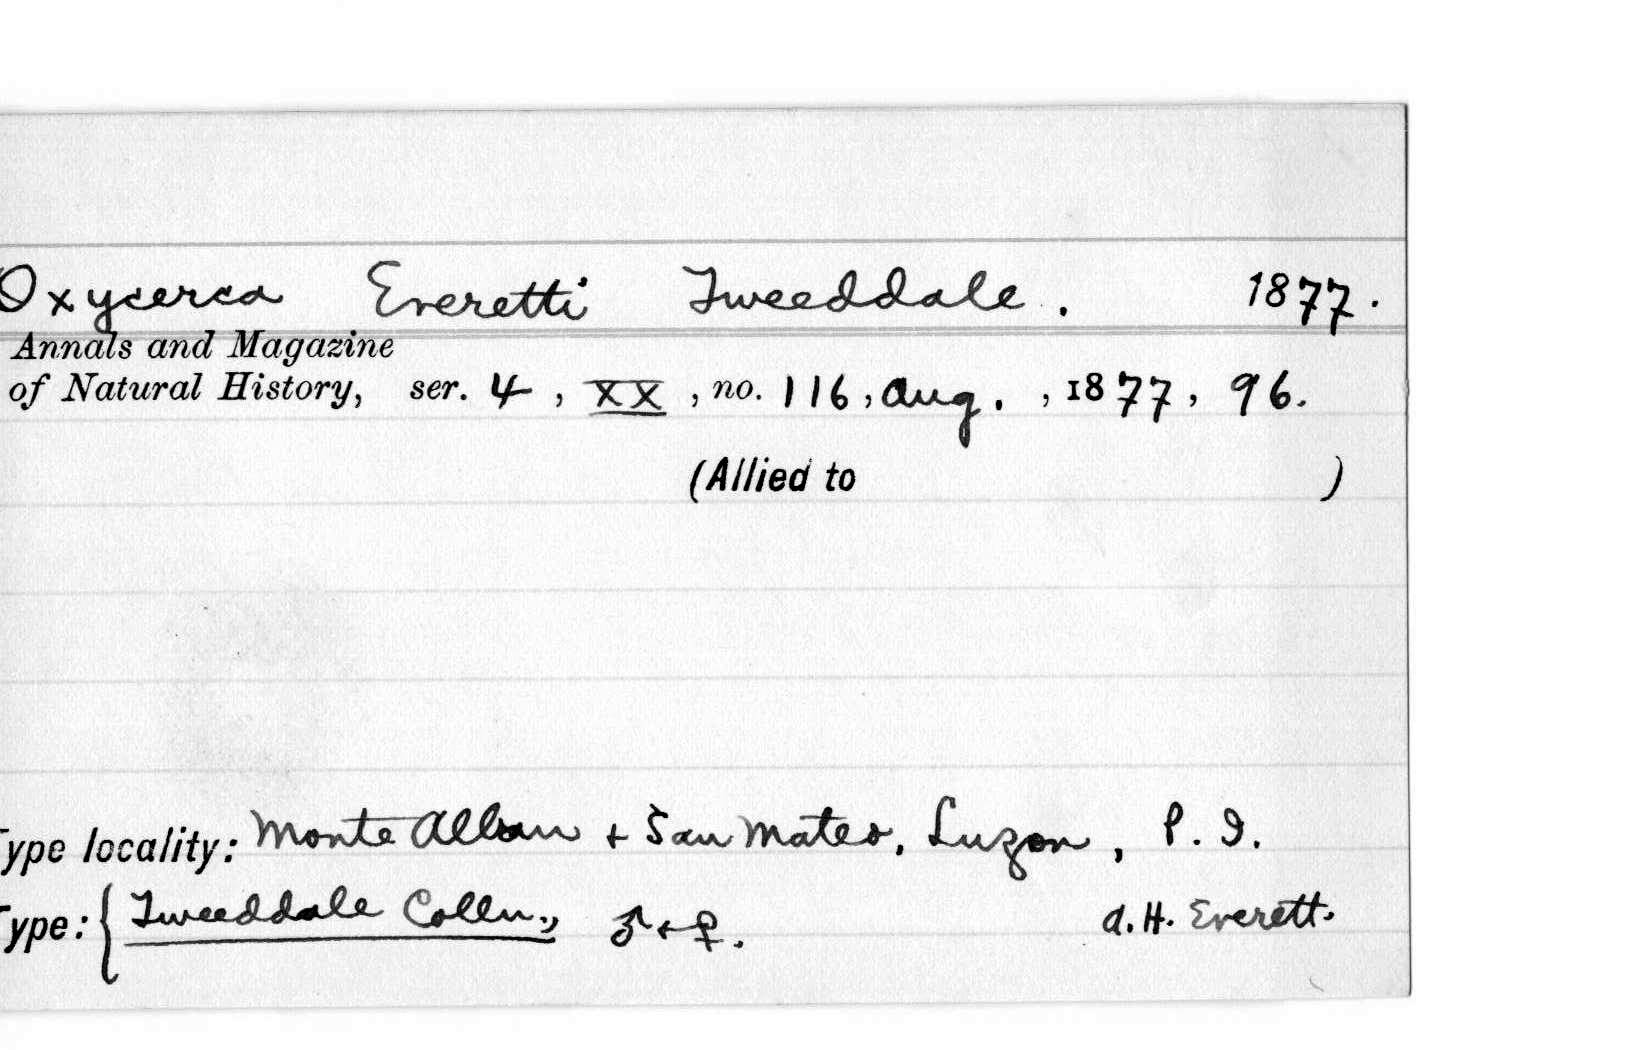 Oxycerca Everetti Tweeddale. 1877.
Annals and Magazine
of Natural History, ser. 4, XX, no. 116, Aug., 1877, 96.
(Allied to )
Type locality: Monte Alban + San Mateo, Luzon, P. I.
Type: { Tweeddale Colln., ♂ + ♀. A. H. Everett.